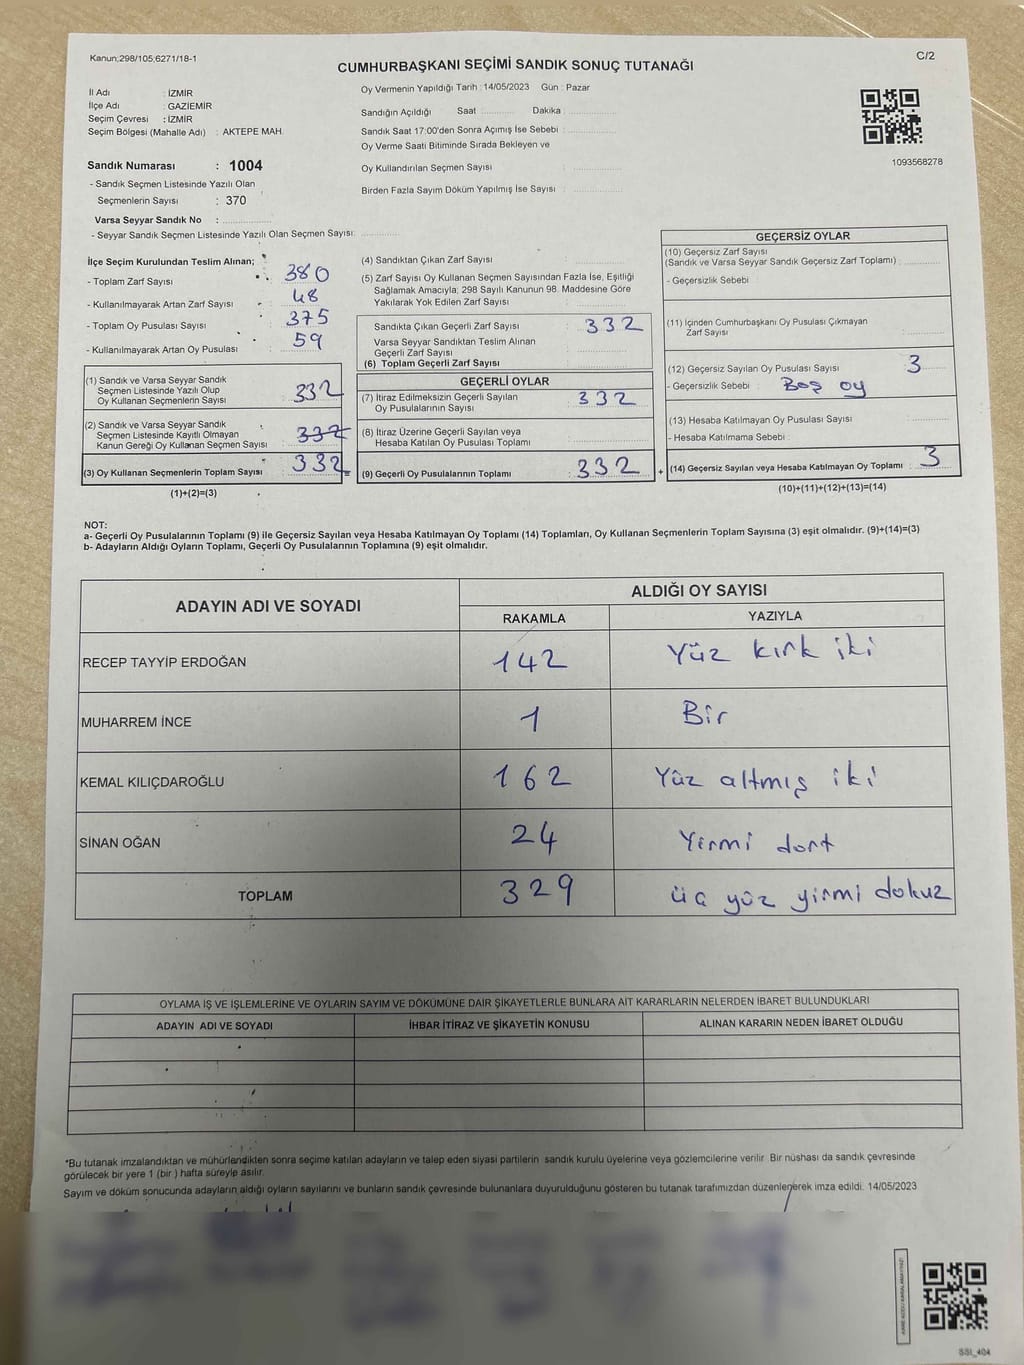 Kanun;298/105;6271/18-1
C/2
CUMHURBAŞKANI SEÇİMİ SANDIK SONUÇ TUTANAĞI
İl Adı : İZMİR
İlçe Adı : GAZİEMİR
Seçim Çevresi : İZMİR
Seçim Bölgesi (Mahalle Adı) : AKTEPE MAH.
Sandık Numarası : 1004
- Sandık Seçmen Listesinde Yazılı Olan
Seçmenlerin Sayısı : 370
Varsa Seyyar Sandık No :
- Seyyar Sandık Seçmen Listesinde Yazılı Olan Seçmen Sayısı:
Oy Vermenin Yapıldığı Tarih : 14/05/2023 Gün : Pazar
Sandığın Açıldığı Saat : Dakika :
Sandık Saat 17:00'den Sonra Açımış İse Sebebi :
Oy Verme Saati Bitiminde Sırada Bekleyen ve
Oy Kullandırılan Seçmen Sayısı :
Birden Fazla Sayım Döküm Yapılmış İse Sayısı :
1093568278
İlçe Seçim Kurulundan Teslim Alınan;
- Toplam Zarf Sayısı : 380
- Kullanılmayarak Artan Zarf Sayısı : 48
- Toplam Oy Pusulası Sayısı : 375
- Kullanılmayarak Artan Oy Pusulası : 59
(1) Sandık ve Varsa Seyyar Sandık
Seçmen Listesinde Yazılı Olup
Oy Kullanan Seçmenlerin Sayısı : 332
(2) Sandık ve Varsa Seyyar Sandık
Seçmen Listesinde Kayıtlı Olmayan
Kanun Gereği Oy Kullanan Seçmen Sayısı : 332
(3) Oy Kullanan Seçmenlerin Toplam Sayısı : 332 =
(1)+(2)=(3)
(4) Sandıktan Çıkan Zarf Sayısı :
(5) Zarf Sayısı Oy Kullanan Seçmen Sayısından Fazla İse, Eşitliği
Sağlamak Amacıyla; 298 Sayılı Kanunun 98. Maddesine Göre
Yakılarak Yok Edilen Zarf Sayısı :
Sandıkta Çıkan Geçerli Zarf Sayısı : 332
Varsa Seyyar Sandıktan Teslim Alınan
Geçerli Zarf Sayısı :
(6) Toplam Geçerli Zarf Sayısı :
GEÇERLİ OYLAR
(7) İtiraz Edilmeksizin Geçerli Sayılan
Oy Pusulalarının Sayısı : 332
(8) İtiraz Üzerine Geçerli Sayılan veya
Hesaba Katılan Oy Pusulaları Toplamı :
(9) Geçerli Oy Pusulalarının Toplamı : 332 +
GEÇERSİZ OYLAR
(10) Geçersiz Zarf Sayısı
(Sandık ve Varsa Seyyar Sandık Geçersiz Zarf Toplamı) :
- Geçersizlik Sebebi :
(11) İçinden Cumhurbaşkanı Oy Pusulası Çıkmayan
Zarf Sayısı :
(12) Geçersiz Sayılan Oy Pusulası Sayısı : 3
- Geçersizlik Sebebi : Boş oy
(13) Hesaba Katılmayan Oy Pusulası Sayısı :
- Hesaba Katılmama Sebebi :
(14) Geçersiz Sayılan veya Hesaba Katılmayan Oy Toplamı : 3
(10)+(11)+(12)+(13)=(14)
NOT:
a- Geçerli Oy Pusulalarının Toplamı (9) ile Geçersiz Sayılan veya Hesaba Katılmayan Oy Toplamı (14) Toplamları, Oy Kullanan Seçmenlerin Toplam Sayısına (3) eşit olmalıdır. (9)+(14)=(3)
b- Adayların Aldığı Oyların Toplamı, Geçerli Oy Pusulalarının Toplamına (9) eşit olmalıdır.
ADAYIN ADI VE SOYADI
ALDIĞI OY SAYISI
RAKAMLA YAZIYLA
RECEP TAYYİP ERDOĞAN 142 Yüz kırk iki
MUHARREM İNCE 1 Bir
KEMAL KILIÇDAROĞLU 162 Yüz altmış iki
SİNAN OĞAN 24 Yirmi dort
TOPLAM 329 üç yüz yirmi dokuz
OYLAMA İŞ VE İŞLEMLERİNE VE OYLARIN SAYIM VE DÖKÜMÜNE DAİR ŞİKAYETLERLE BUNLARA AİT KARARLARIN NELERDEN İBARET BULUNDUKLARI
ADAYIN ADI VE SOYADI İHBAR İTİRAZ VE ŞİKAYETİN KONUSU ALINAN KARARIN NEDEN İBARET OLDUĞU
*Bu tutanak imzalandıktan ve mühürlendikten sonra seçime katılan adayların ve talep eden siyasi partilerin sandık kurulu üyelerine veya gözlemcilerine verilir. Bir nüshası da sandık çevresinde
görülecek bir yere 1 (bir ) hafta süreyle asılır.
Sayım ve döküm sonucunda adayların aldığı oyların sayılarını ve bunların sandık çevresinde bulunanlara duyurulduğunu gösteren bu tutanak tarafımızdan düzenlenerek imza edildi. 14/05/2023
SSI_404